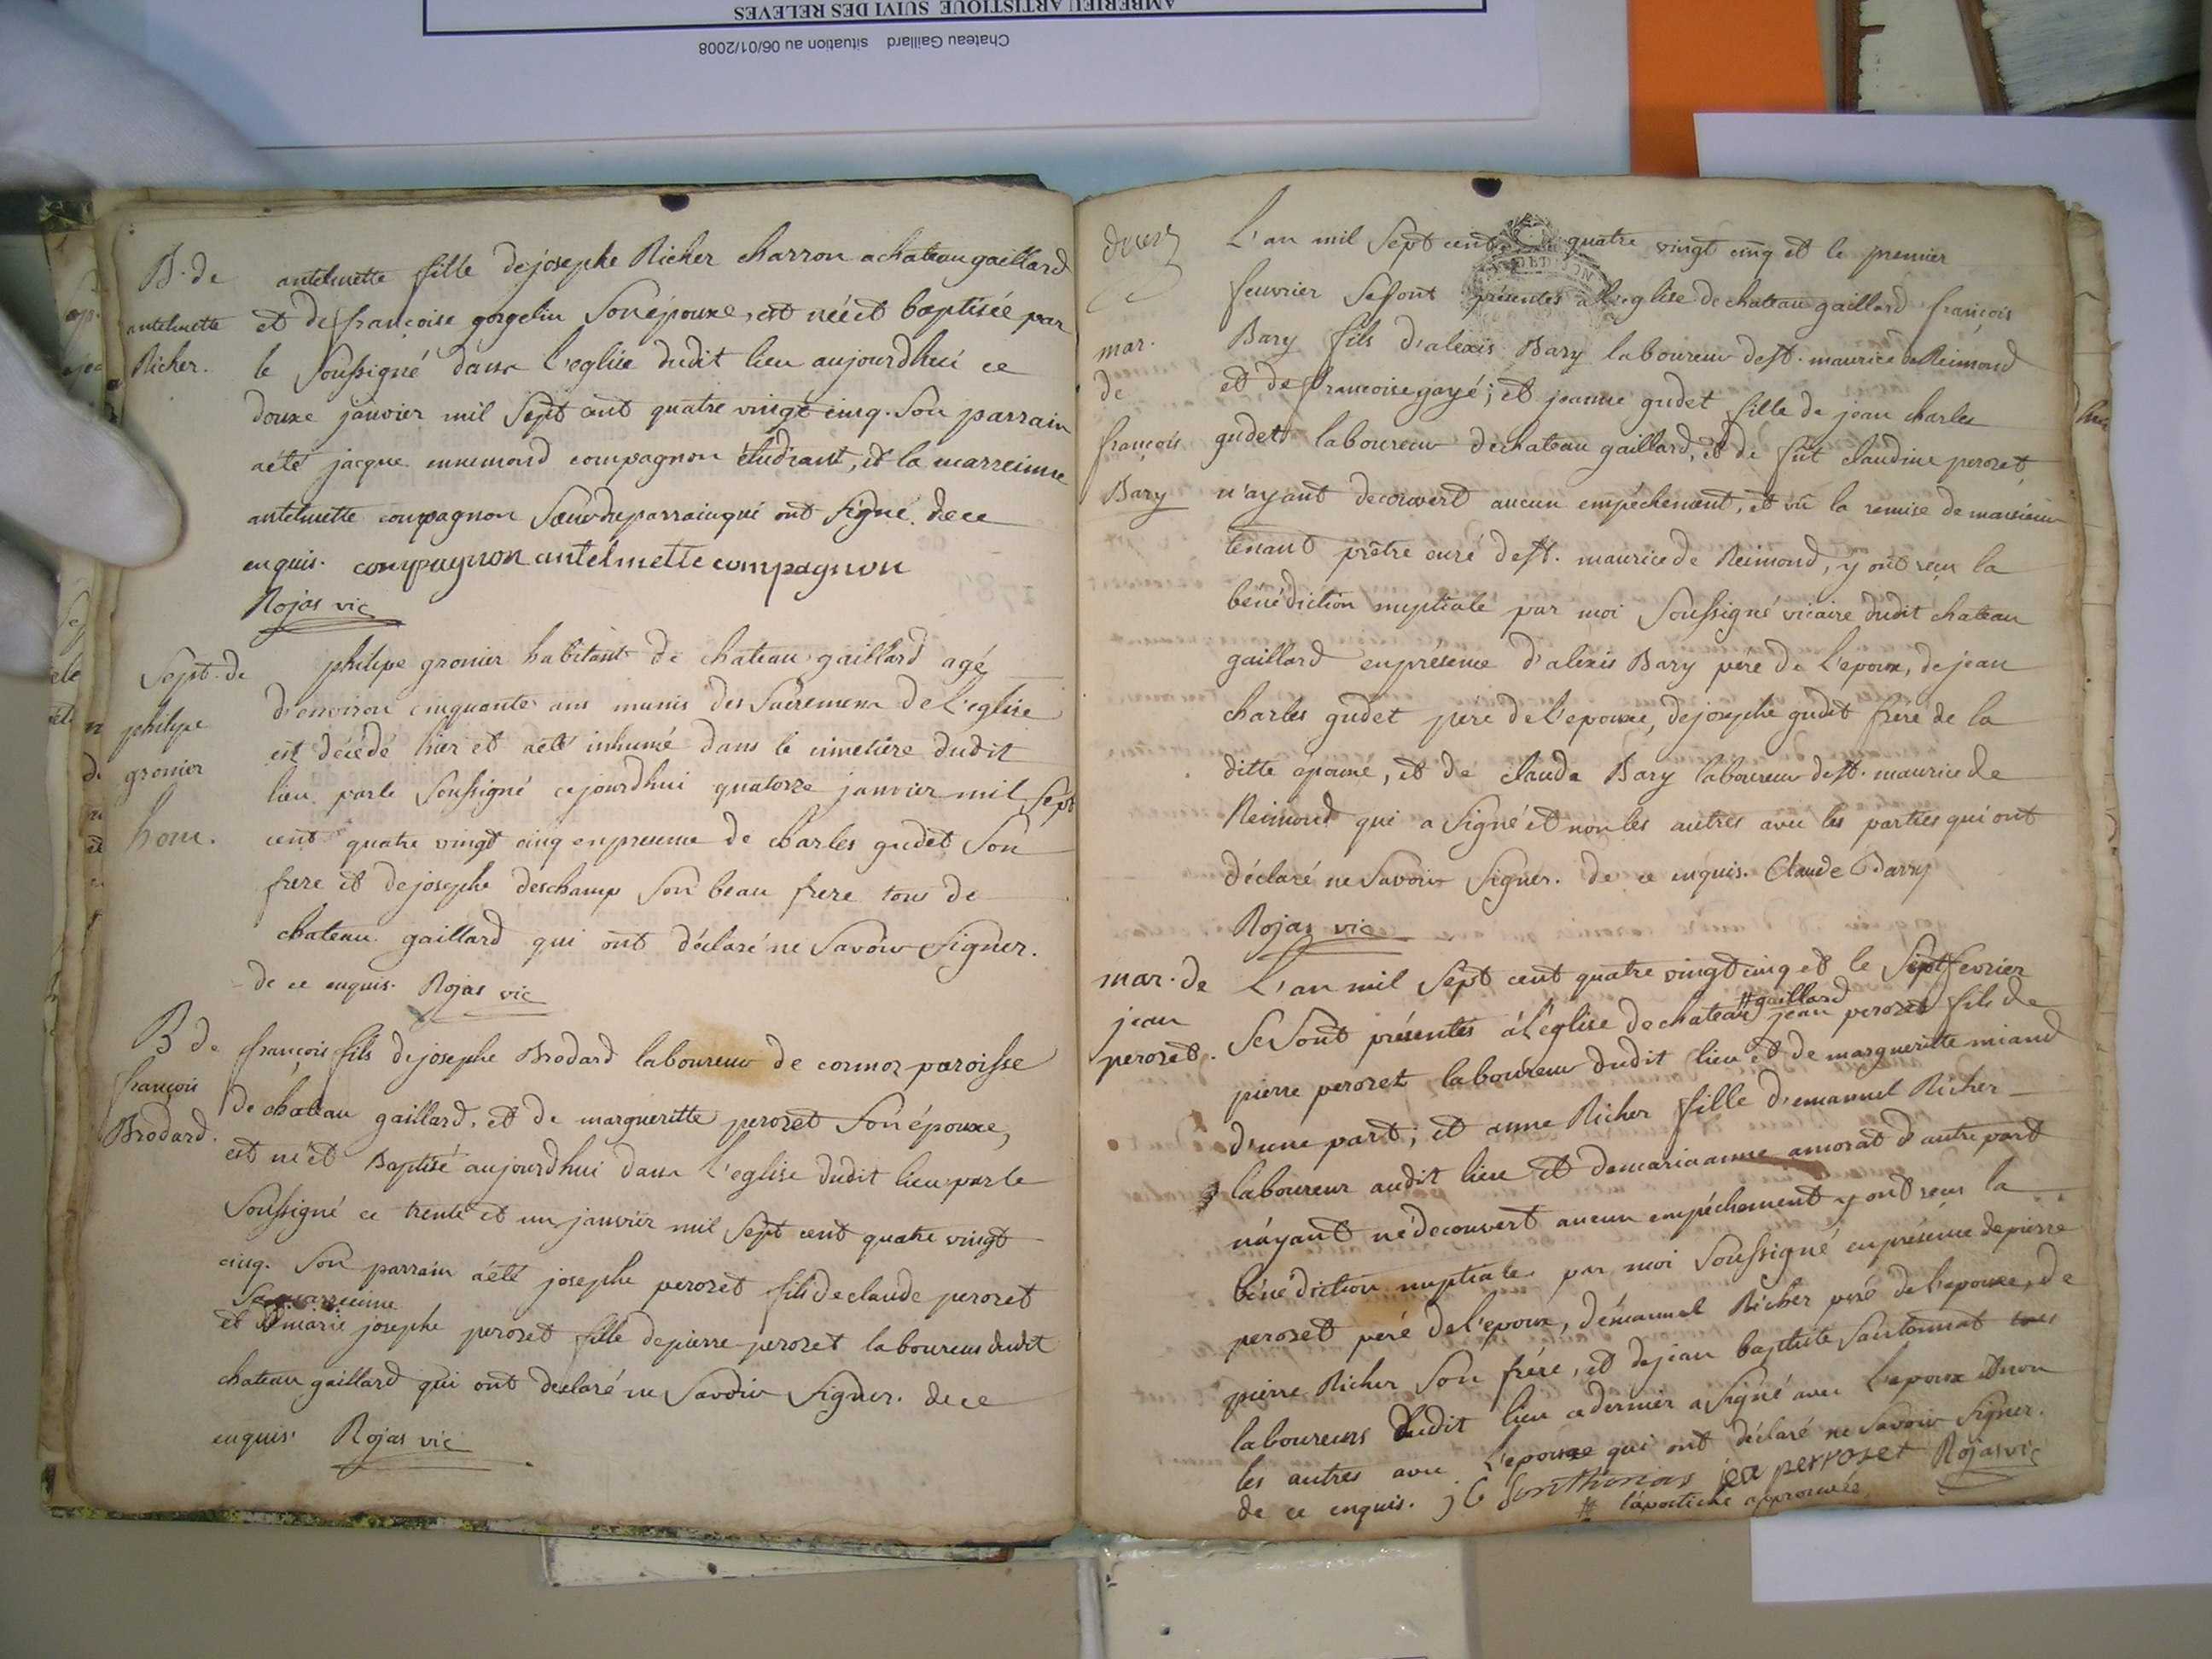 AMBERIEU ARTISTIQUE SUIVI DES RELEVES
Chateau Gaillard situation au 06/01/2008
B. de
antelmette
Richer.
antelmette fille de josephe Richer charron a chateau gaillard
et de françoise gorgelin son épouxe, est née et baptisée par
le soussigné dans l'eglise dudit lieu aujourdhui ce
douxe janvier mil sept cent quatre vingt cinq. son parrain
a été jacque ennemond compagnon étudiant, et la marreinne
antelmette compagnon sœur du parrain qui ont signé. de ce
enquis. compagnon antelmette compagnon
Rojas vic
Sept. de
philipe
gronier
hom.
philipe gronier habitant de chateau gaillard agé
d'environ cinquante ans munis des sacremens de l'eglise
est décédé hier et a été inhumé dans le cimetière dudit
lieu par le soussigné cejourdhui quatorze janvier mil sept
cent quatre vingt cinq en presence de charles gudet son
frere et de josephe deschamp son beau frere tous de
chateau gaillard qui ont déclaré ne savoir signer.
de ce enquis. Rojas vic
B de
françois
Brodard.
françois fils de josephe Brodard laboureur de cormoz paroisse
de chateau gaillard, et de margueritte perozet son épouxe,
est né et Baptisé aujourdhui dans l'eglise dudit lieu par le
soussigné ce trente et un janvier mil sept cent quatre vingt
cinq. son parrain a été josephe perozet fils de claude perozet
sa marreinne
et marie josephe perozet fille de pierre perozet laboureur dudit
chateau gaillard qui ont declaré ne savoir signer. de ce
enquis. Rojas vic
mar.
de
françois
Bary
L'an mil sept cent quatre vingt cinq et le premier
feuvrier se sont présentés a l'eglise de chateau gaillard françois
Bary fils d'alexis Bary laboureur de st. maurice de Reimond
et de francoise gayé; et jeanne gudet fille de jean charles
gudet laboureur de chateau gaillard, et de fut claudine perozet
n'ayant decouvert aucun empéchement, et vû la remise de monsieur
tenant prêtre curé de st. maurice de Reimond, y ont reçu la
bénédiction nuptiale par moi soussigné vicaire dudit chateau
gaillard en présence d'alexis Bary péré de l'epoux, de jean
charles gudet pere de l'epouxe, de josephe gudet frére de la
ditte épouxe, et de claude Bary laboureur de st. maurice de
Reimond qui a signé et non les autres avec les parties qui ont
déclaré ne savoir signer. de ce enquis. Claude Barry
Rojas vic
mar. de
jean
perozet.
L'an mil sept cent quatre vingt cinq et le sept fevrier
#gaillard
se sont présentés à l'église de chateau jean perozet fils de
pierre perozet laboureur dudit lieu et de margueritte miand
d'une part; et anne Richer fille d'emanuel Richer
laboureur audit lieu et de marie anne amorat d'autre part
n'ayant né decouvert aucun empéchement y ont reçu la
bénédiction nuptiale par moi soussigné en présence de pierre
perozet peré de l'epoux, d'émanuel Richer péré de l'epouxe, de
pierre Richer son frére, et de jean baptiste santonnat tous
laboureurs dudit lieu ce dernier a signé avec l'epoux et non
les autres avec l'epouxe qui ont déclaré ne savoir signer.
de ce enquis. j b Santhonas jea perrozet Rojas vic
# l'apostiche approuvée